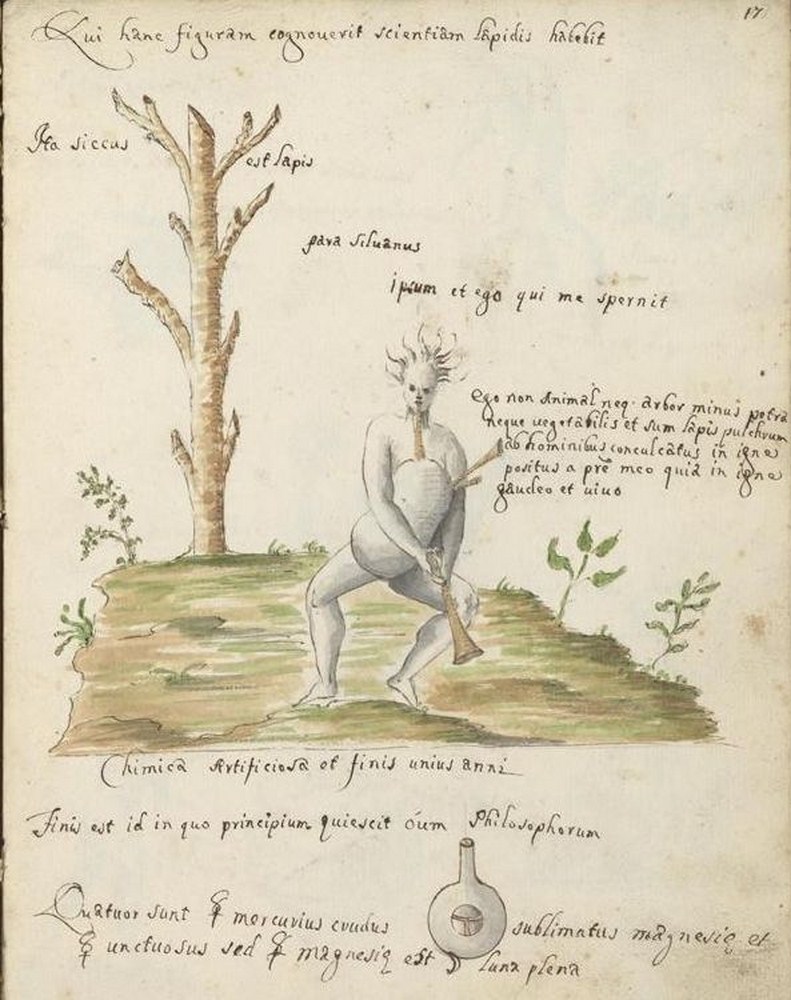 17
Qui hanc figuram cognoverit scientiam lapidis habebit
Ita siccus
est lapis
para siluanus
ipsum et ego qui me spernit
Ego non Animal neq. arbor minus petra
neque uegetabilis et sum lapis pulchrum
ab hominibus conculcatus in igne
positus a pre meo quia in igne
gaudeo et uiuo
Chimica Artificiosa et finis unius anni
Finis est id in quo principium quiescit oum Philosophorum
Quatuor sunt ☿ mercurius crudus sublimatus magnesię et
☿ unctuosus sed ☿ magnesię est luna plena